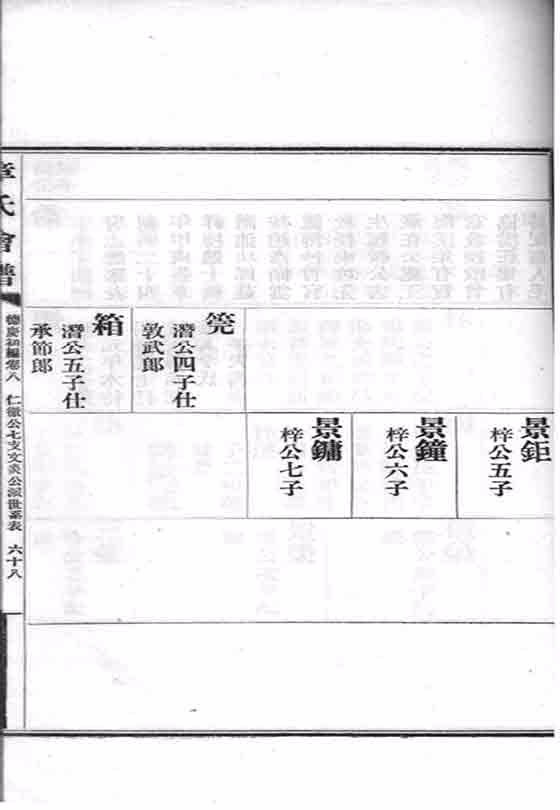 景鉅
梓公五子
景鐘
梓公六子
景鏞
梓公七子
筦
潛公四子仕
敦武郎
箱
潛公五子仕
承節郎
章氏會譜
德慶初編卷八
仁徹公七支文炎公派世系表
六十八